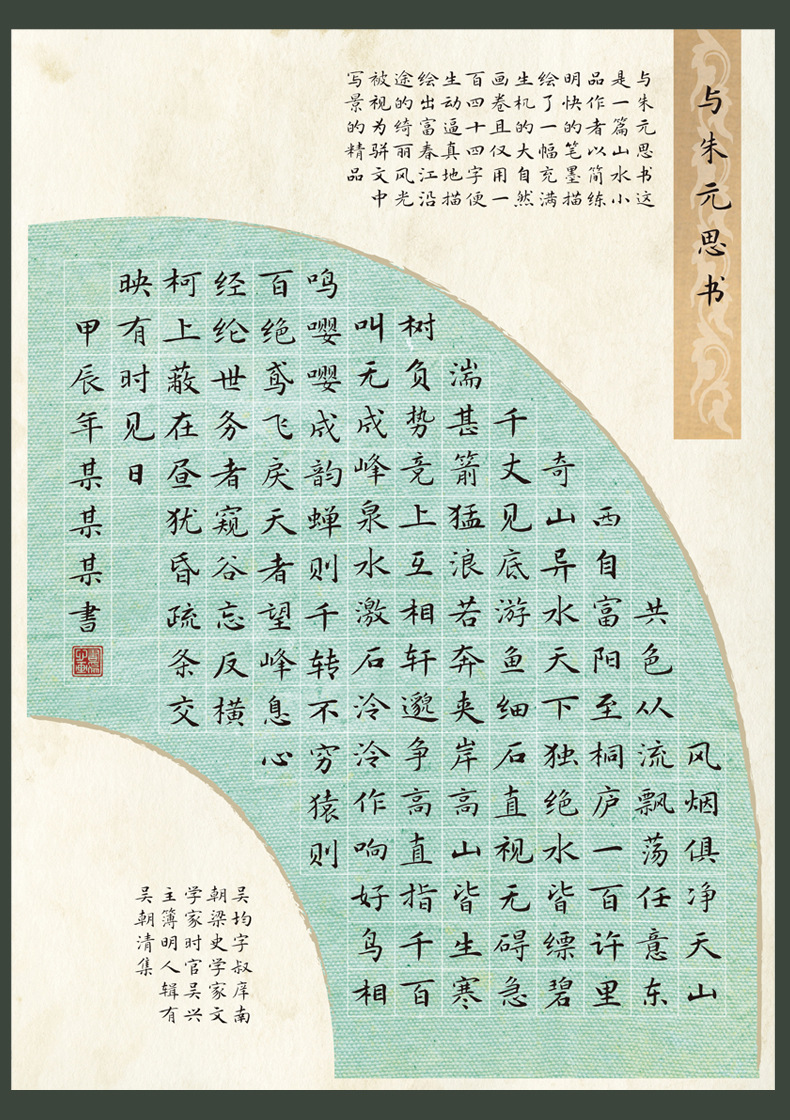 与朱元思书
与朱元思书这
是一篇山水小
品作者以简练
明快的笔墨描
绘了一幅充满
生机的大自然
画卷且仅用一
百四十四字便
生动逼真地描
绘出富春江沿
途的绮丽风光
被视为骈文中
写景的精品
风烟俱净天山
共色从流飘荡任意东
西自富阳至桐庐一百许里
奇山异水天下独绝水皆缥碧
千丈见底游鱼细石直视无碍急
湍甚箭猛浪若奔夹岸高山皆生寒
树负势竞上互相轩邈争高直指千百
叫无成峰泉水激石泠泠作响好鸟相
鸣嘤嘤成韵蝉则千转不穷猿则
百绝鸢飞戾天者望峰息心
经纶世务者窥谷忘反横
柯上蔽在昼犹昏疏条交
映有时见日
甲辰年某某某書
吴均字叔庠南
朝梁史学家文
学家时官吴兴
主簿明人辑有
吴朝清集